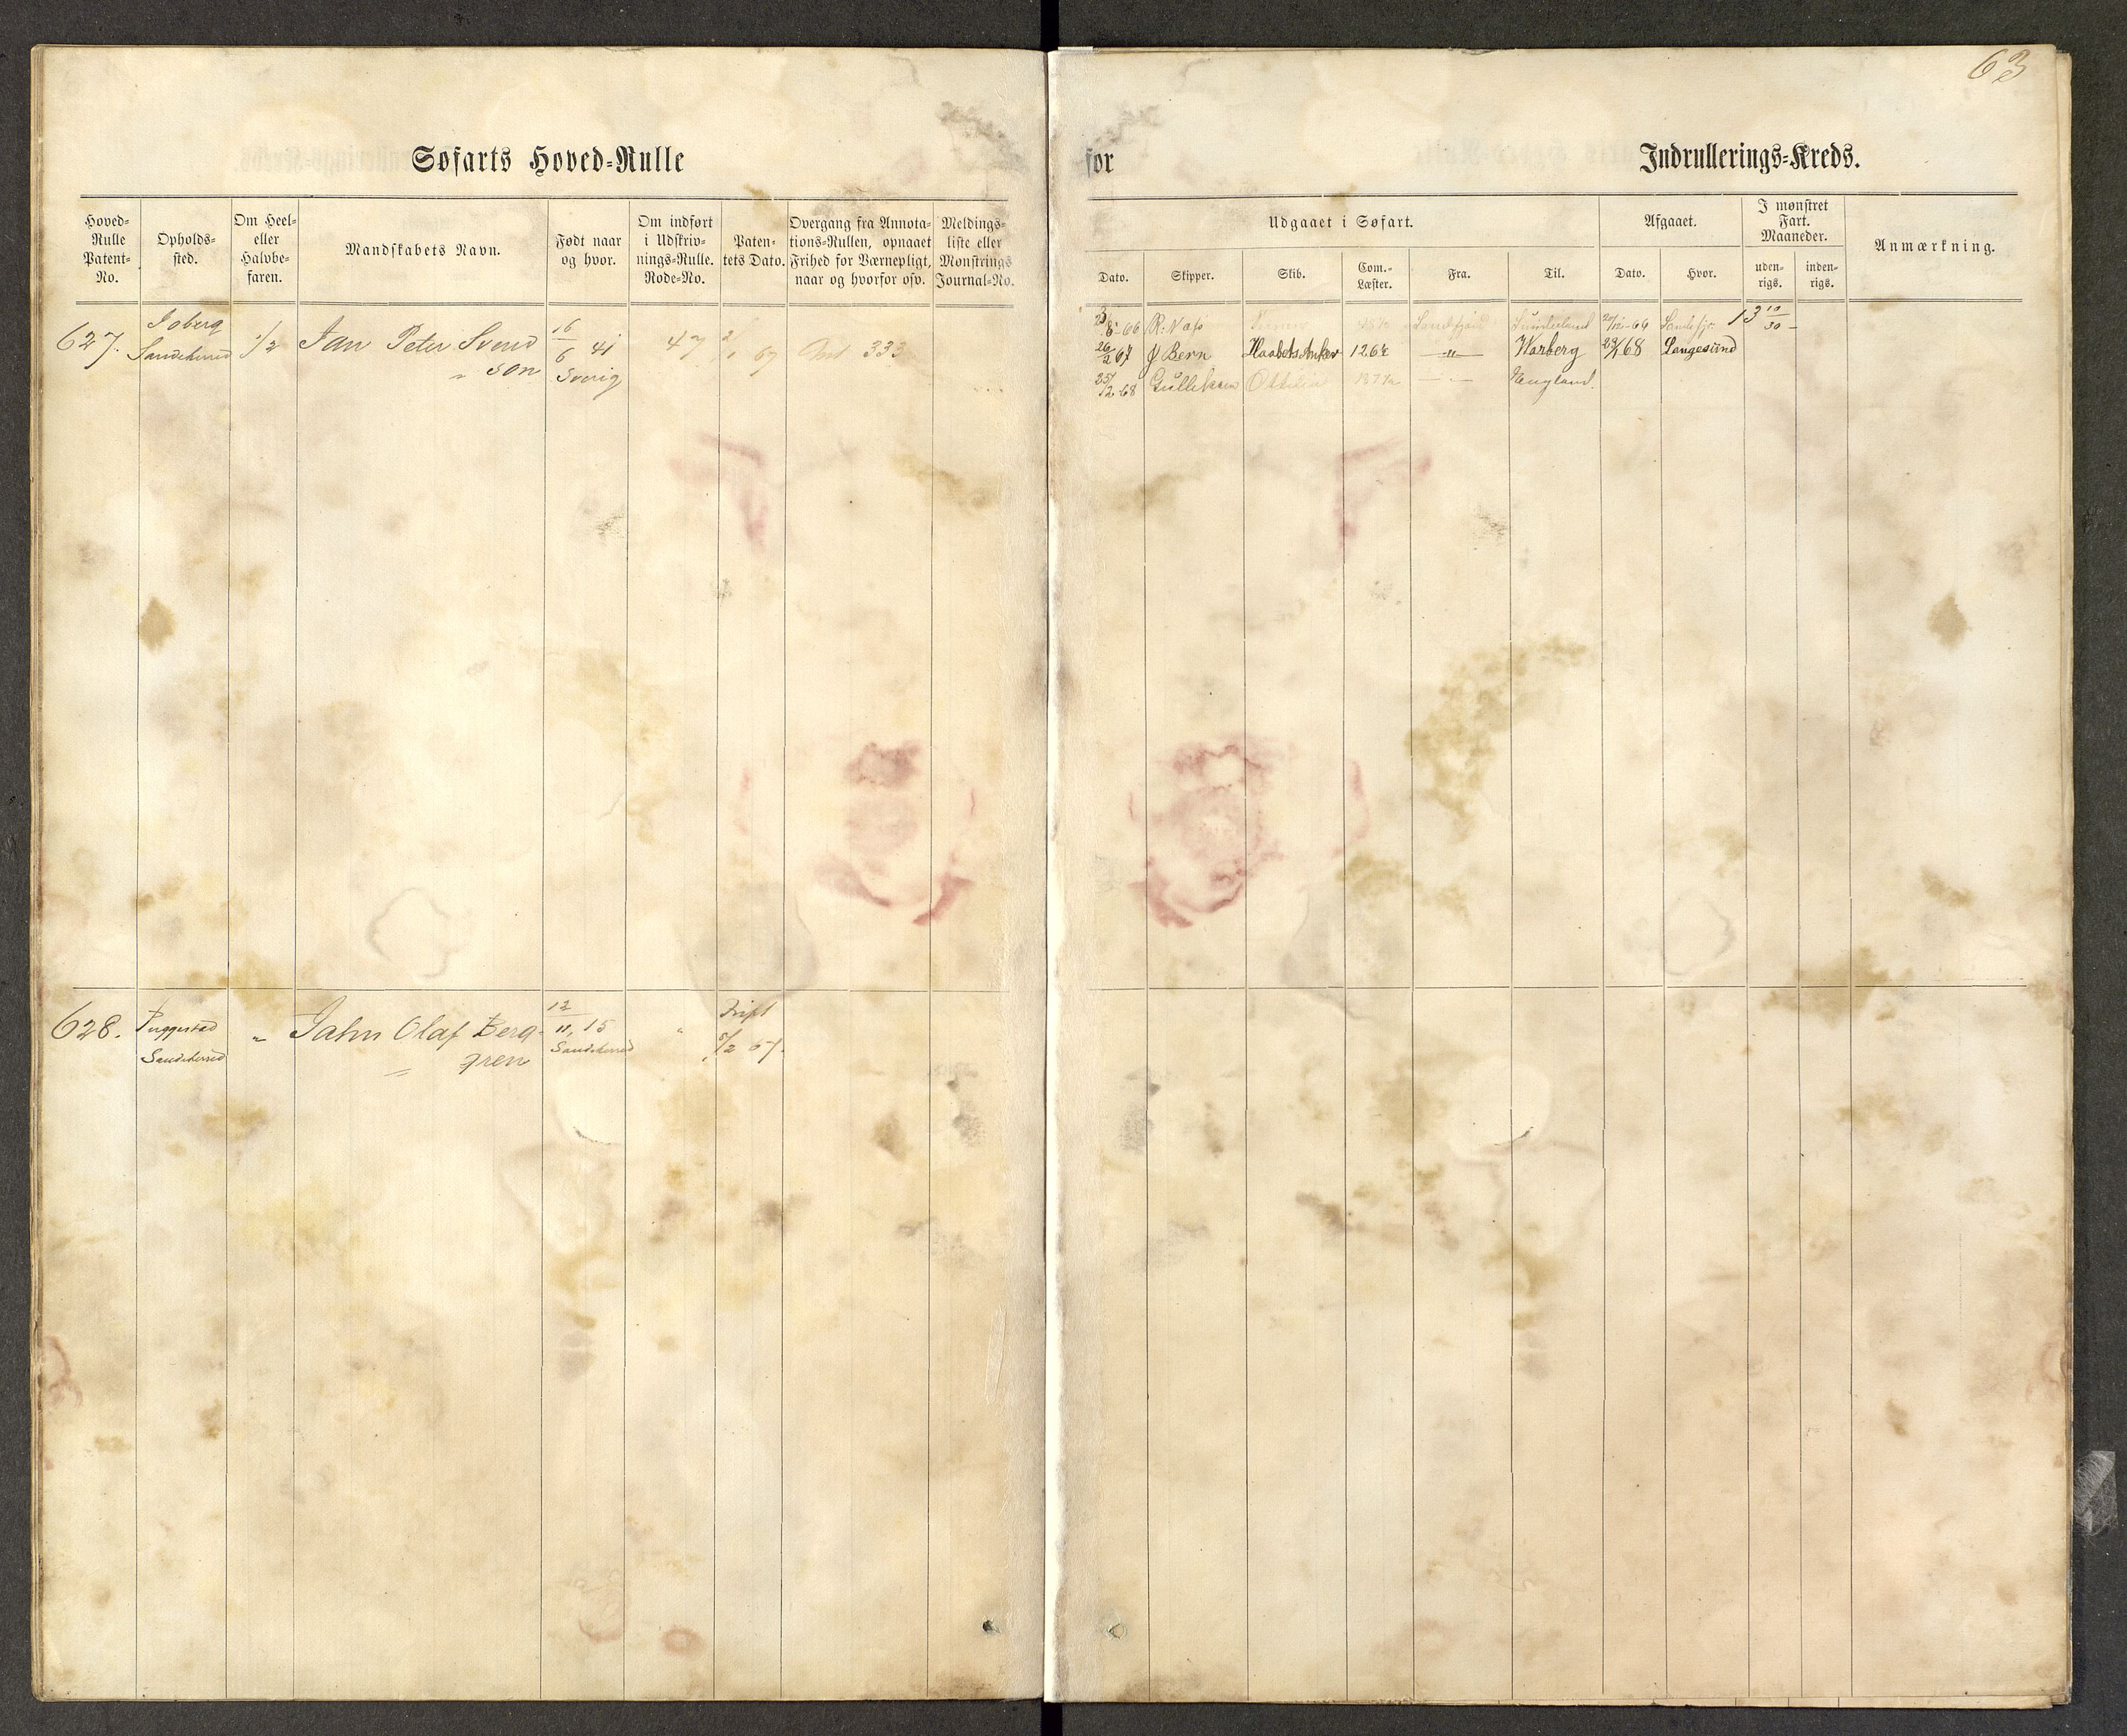 63
Søfarts Hoved-Rulle
for Indrullerings-Kreds.
Hoved-Rulle Patent-No.
Opholds-sted.
Om Heel- eller Halvbe-faren.
Mandskabets Navn.
Født naar og hvor.
Om indført i Udskriv-nings-Rulle. Rode-No.
Paten-tets Dato.
Overgang fra Annota-tions-Rullen, opnaaet Frihed for Værnepligt, naar og hvorfor osv.
Meldings-liste eller Mønstrings Journal-No.
Udgaaet i Søfart.
Dato. Skipper. Skib. Com.-Læster. Fra. Til.
Afgaaet.
Dato. Hvor.
I mønstret Fart. Maaneder.
uden-rigs. inden-rigs.
Anmærkning.
627. Sandeherred 1/2 Jan Peter Svend
son
16/6 41
Sverig
47
2/1 67
333
8-66 R. Nass Sandefjord Sunderland 20/12-66 Sandefj. 13 10/30
26/2 67 J Bern Haabets Anker 126 1/2 —"— Warberg 23/1 68 Langesund
25/2 68 Gulliksen Ottilia —"— England.
628.
Sandeherred
" Jahn Olaf Berg-
gren
12/11, 15
Sandeherred
"
Frift
8/2 67.